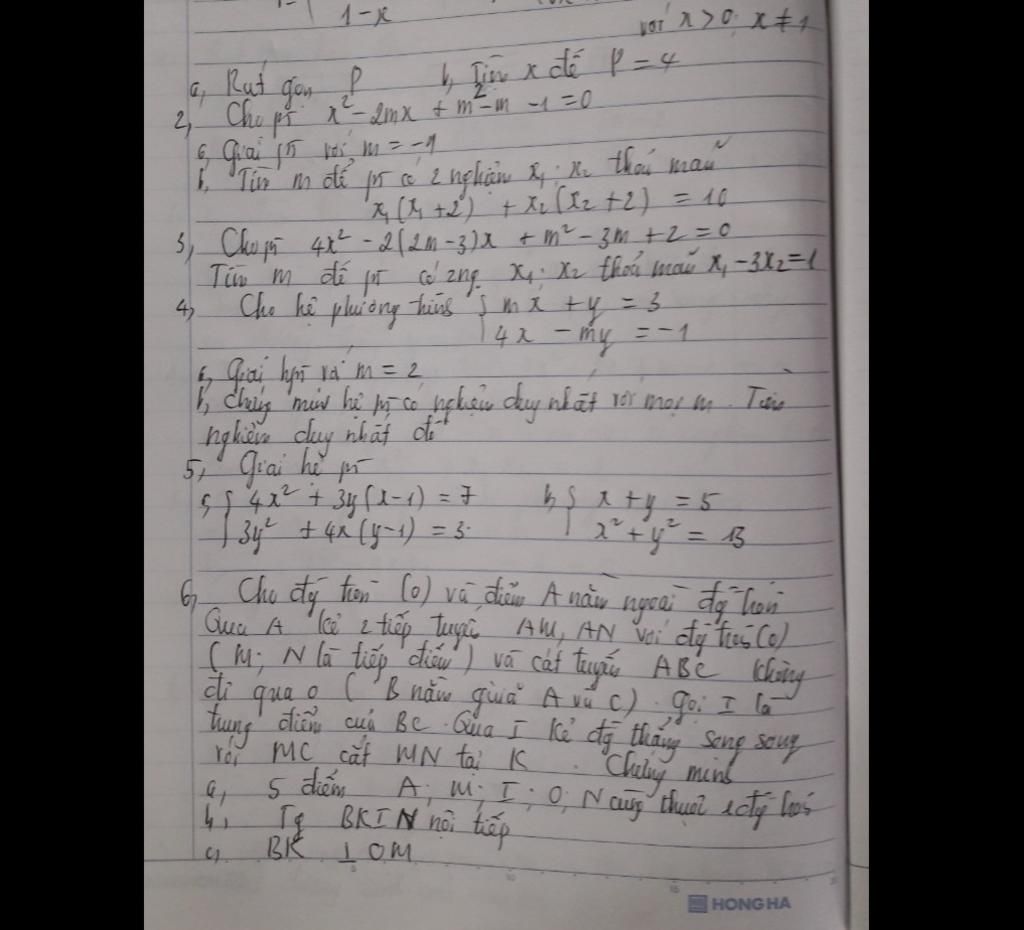 1-x
với x > 0; x ≠ 1
a, Rút gọn P b, Tìm x để P = 4
2, Cho pt x² - 2mx + m² - m - 1 = 0
a, Giải pt với m = -1
b, Tìm m để pt có 2 nghiệm x₁; x₂ thoả mãn
x₁(x₁+2) + x₂(x₂+2) = 10
3, Cho pt 4x² - 2(2m-3)x + m² - 3m + 2 = 0
Tìm m để pt có 2ng x₁; x₂ thoả mãn x₁ - 3x₂ = 1
4, Cho hệ phương trình { mx + y = 3
4x - my = -1
a, Giải hpt với m = 2
b, Chứng minh hệ pt có nghiệm duy nhất với mọi m. Tìm
nghiệm duy nhất đó
5, Giải hệ pt
a, { 4x² + 3y(x-1) = 7 b, { x + y = 5
3y² + 4x(y-1) = 3 x² + y² = 13
6, Cho đg tròn (O) và điểm A nằm ngoài đg tròn
Qua A kẻ 2 tiếp tuyến AM, AN với đg tròn (O)
(M; N là tiếp điểm) và cát tuyến ABC không
đi qua O (B nằm giữa A và C). Gọi I là
trung điểm của BC. Qua I kẻ đg thẳng song song
với MC cắt MN tại K. Chứng minh
a, 5 điểm A; M; I; O; N cùng thuộc 1 đg tròn
b, Tg BKIN nội tiếp
c, BK ⊥ OM
HONG HA